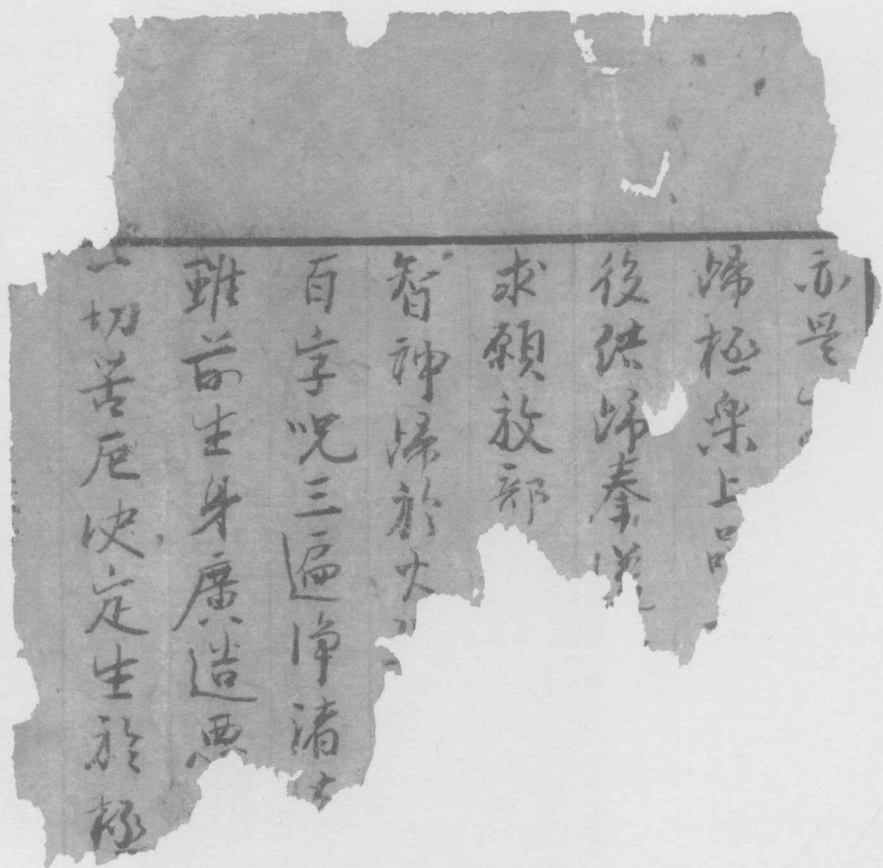 亦是
歸極樂上品
後結歸奉送
求願放部
智神歸於火
百字呪三遍淨諸
雖前生身廣造惡
一切苦厄決定生於極